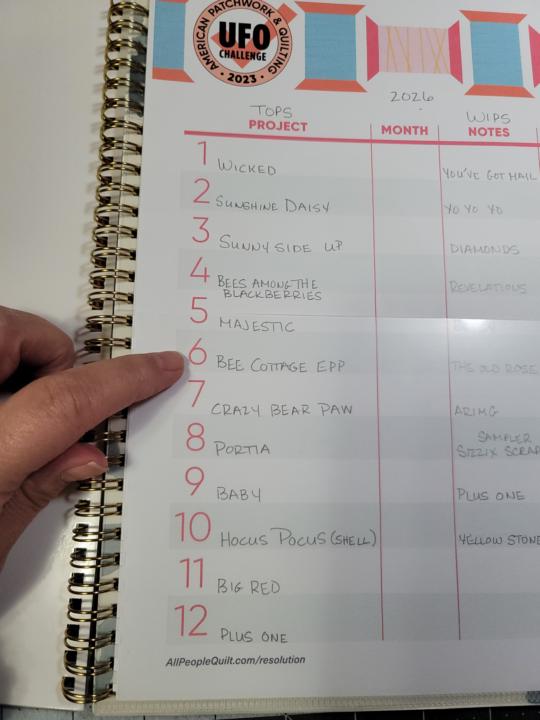 AMERICAN PATCHWORK & QUILTING
UFO
CHALLENGE
• 2023 •
2026
TOPS WIPS
PROJECT MONTH NOTES
1 WICKED YOU'VE GOT MAIL
2 SUNSHINE DAISY YO YO YO
3 SUNNY SIDE UP DIAMONDS
4 BEES AMONG THE
BLACKBERRIES REVELATIONS
5 MAJESTIC
6 BEE COTTAGE EPP THE OLD ROSE
7 CRAZY BEAR PAW ARIMG
8 PORTIA SAMPLER
SIZZIX SCRAP
9 BABY PLUS ONE
10 HOCUS POCUS (SHELL) YELLOW STONE
11 BIG RED
12 PLUS ONE
AllPeopleQuilt.com/resolution